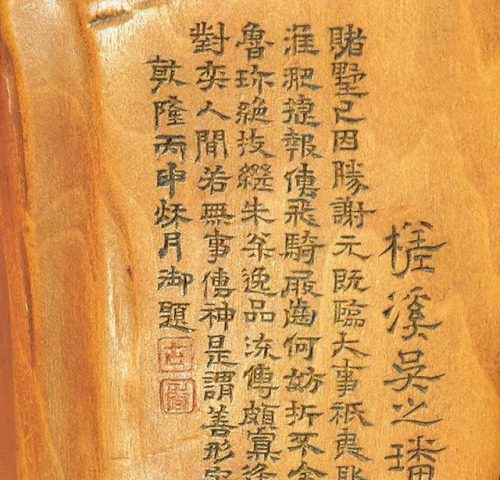 槎溪吳之璠
賭墅已因勝謝元既臨大事祇夷
淮淝捷報傳飛騎屐齒何妨折不全
魯珍絕技繼朱枀逸品流傳頗賞逢
對奕人間若無事傳神是謂善形容
乾隆丙申秌月御題
古
香